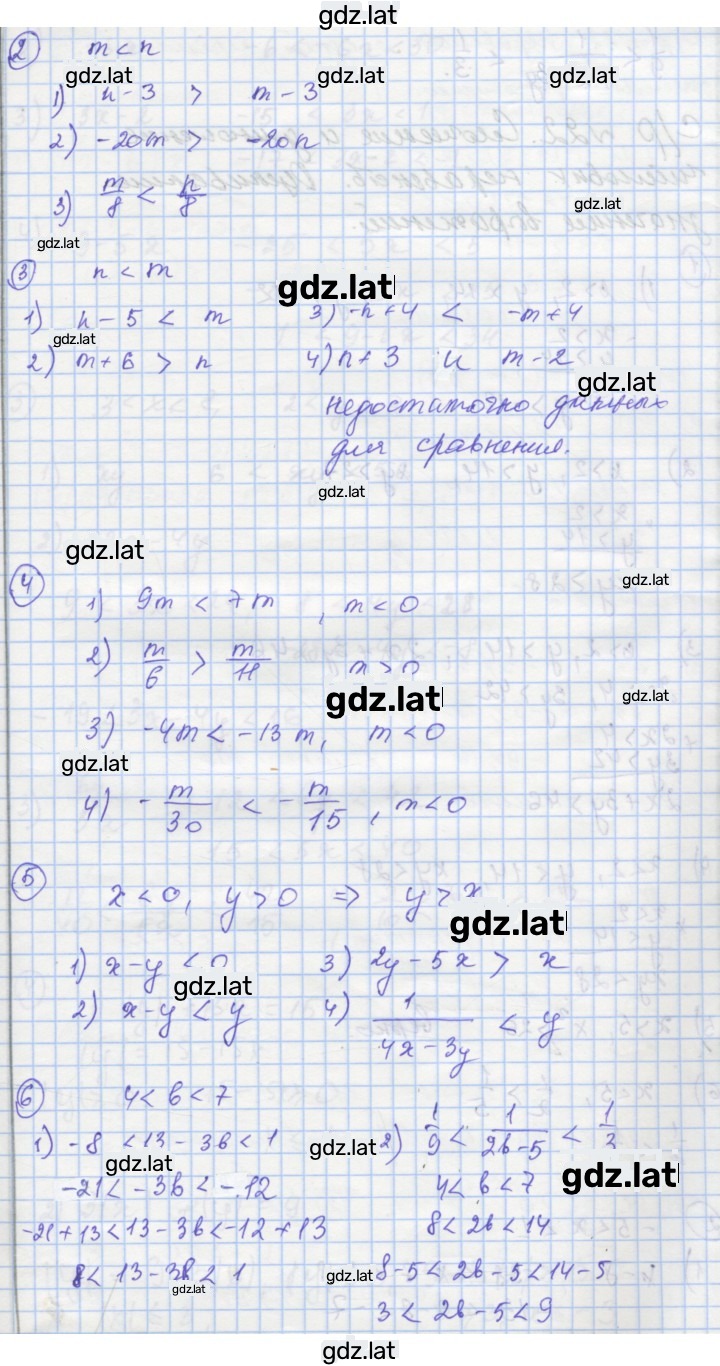 gdz.lat
② m < n
gdz.lat gdz.lat gdz.lat
1) n - 3 > m - 3
2) -20m > -20n
3) m/8 < n/8
gdz.lat
gdz.lat
③ n < m
gdz.lat
1) n - 5 < m 3) -n + 4 < -m + 4
gdz.lat
2) m + 6 > n 4) n + 3 и m - 2
gdz.lat
недостаточно данных
для сравнения.
gdz.lat
gdz.lat
④ gdz.lat
1) 9m < 7m, m < 0
2) m/6 > m/11 m > 0
gdz.lat gdz.lat
3) -4m < -13m, m < 0
gdz.lat
4) - m/30 < - m/15, m < 0
⑤ x < 0, y > 0 ⇒ y > x
gdz.lat
1) x - y < 0 3) 2y - 5x > x
gdz.lat
2) x - y < y 4) 1/(4x - 3y) < y
⑥ 4 < b < 7
1) -8 < 13 - 3b < 1 2) 1/9 < 1/(2b - 5) < 1/3
gdz.lat gdz.lat gdz.lat
-21 < -3b < -12 4 < b < 7
-21 + 13 < 13 - 3b < -12 + 13 8 < 2b < 14
8 < 13 - 3b < 1 8 - 5 < 2b - 5 < 14 - 5
gdz.lat gdz.lat
3 < 2b - 5 < 9
gdz.lat